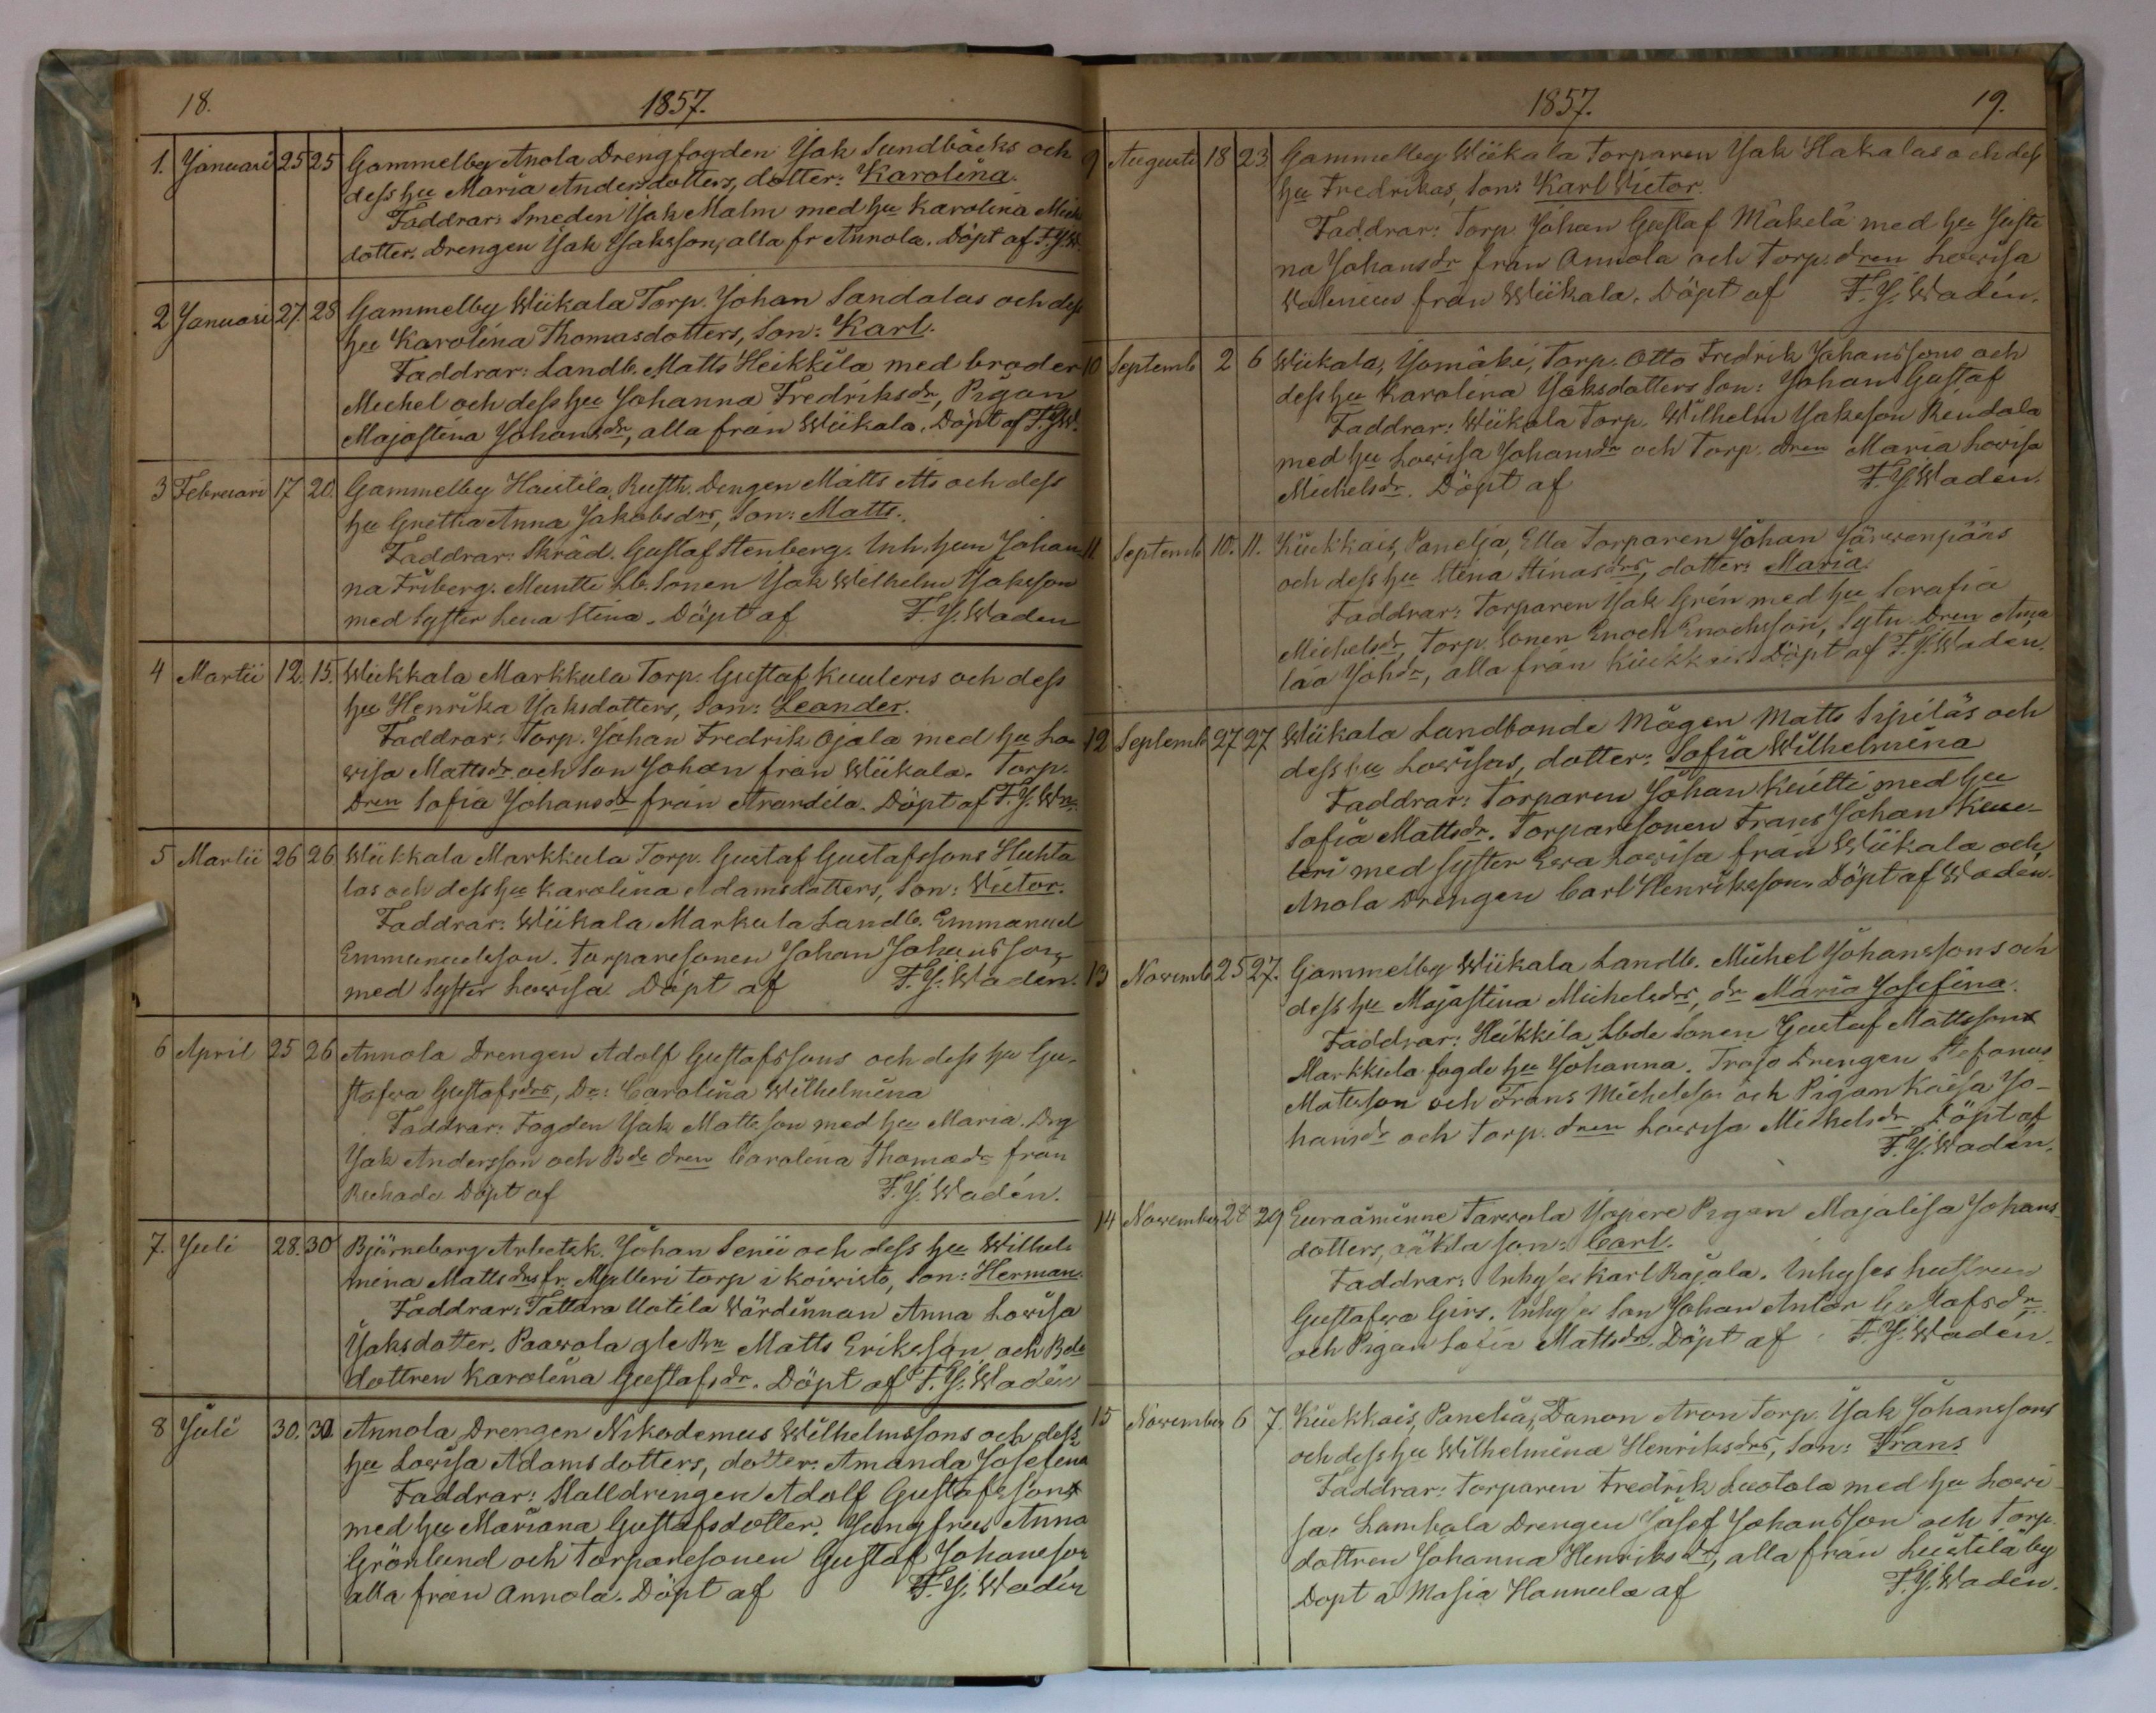 18.
1857.
1. Januari 25 25 Gammelby Anola Drengfogden Isak Sundbäcks och
dess hu Maria Andersdotters, dotter: Karolina.
Faddrar: Smeden Isak Malm med hu Karolina Mich
dotter. Drengen Isak Isaksson, alla fr Annola. Döpt af F.I.W.
2 Januari 27. 28 Gammelby Wiikala Torp. Johan Sandalas och dess
hu Karolina Thomasdotters, Son: Karl.
Faddrar: Landb. Matts Heikkilä med broder
Michel och dess hu Johanna Fredriksdr, Pigan
Majastina Johansdr, alla från Wiikala. Döpt af F.I.W.
3 Februari 17 20. Gammelby Haistila, Rusth. Dengen Matts Atts och dess
hu Gretha Anna Jakobsdrs, Son: Matts.
Faddrar: Skräd. Gustaf Stenberg. Inh. hun Johan
na Friberg. Muntti Lb. Sonen Isak Wilhelm Isaksson
med Syster Lena Stina. Döpt af F.I. Waden
4 Martii 12. 15. Wiikkala Markkula Torp. Gustaf Kuuleris och dess
hu Henrika Isaksdotters, Son: Leander.
Faddrar: Torp. Johan Fredrik Ojala med hu Lo-
wisa Mattsdr. och Son Johan från Wiikala. Torp.
Dren Sofia Johansdr från Arandila. Döpt af F.I. Wn.
5 Martii 26 26 Wiikkala Markkula Torp. Gustaf Gustafssons Huhta
las och dess hu Karolina Adamsdotters, Son: Victor.
Faddrar: Wiikala Markula Landb. Emmanuel
Emmanuelsson. Torparesonen Johan Johansson
med Syster Lowisa. Döpt af F.I. Waden.
6 April 25 26 Annola Drengen Adolf Gustafssons och dess hu Gu-
stafwa Gustafsdrs, Dr: Carolina Wilhelmina
Faddrar: Fogden Isak Mattsson med hu Maria. Drg
Isak Andersson och Bde dren Carolina Thomasdr från
Ruhade Döpt af F.I. Wadén.
7. Juli 28. 30 Björneborg Arbetsk. Johan Senii och dess hu Wilhel-
mina Mattsdrs fr. Mylleri torp i Koiwisto, Son: Herman.
Faddrar: Tattara Uotila Wärdinnan Anna Lowisa
Isaksdotter. Paawola gle Bn Matts Eriksson och Bde
dottren Karolina Gustafsdr. Döpt af F.I. Wadén
8 Juli 30. 31. Annola Drengen Nikodemus Wilhelmssons och dess
hu Lowisa Adamsdotters, dotter: Amanda Josefina
Faddrar: Stalldrengen Adolf Gustafsson
med hu Mariana Gustafsdotter. Jungfru Anna
Grönlund och torparesonen Gustaf Johansson
alla från Annola. Döpt af F.I. Wadén
1857.
19.
9 Augusti 18 23 Gammelby Wiikala Torparen Isak Hakalas och dess
hu Fredrikas, Son: Karl Victor.
Faddrar: Torp. Johan Gustaf Mäkelä med hu Justi
na Johansdr från Annola och Torp. dren Lowisa
från Wiikala. Döpt af F.I. Wadén.
10 Septemb 2 6 Wiikala, Isomäki, Torp. Otto Fredrik Johanssons och
dess hu Karolina Isaksdotters Son: Johan Gustaf
Faddrar: Wiikala Torp. Wilhelm Isaksson Rindala
med hu Lowisa Johansdr och Torp. dren Maria Lowisa
Michelsdr. Döpt af F.I. Waden.
11 Septemb 10. 11. Kiukkais, Panelja, Ella Torparen Johan Järwenpääs
och dess hu Stina Stinasdrs, dotter: Maria.
Faddrar: Torparen Isak Grén med hu Serafia
Michelsdr, Torp. Sonen Enoch Enochsson, Sytn. Dren
Johdr, alla från Kiukkais. Döpt af F.I. Waden.
12 Septemb. 27 27 Wiikala Landbonde Mågen Matts Sipiläs och
dess hu Lowisas, dotter: Sofia Wilhelmina
Faddrar: Torparen Johan Knihti med hu
Sofia Mattsdr. Torparesonen Frans Johan Kuu-
leri med Syster Ewa Lowisa från Wiikala och
Anola Drengen Carl Henriksson. Döpt af Wadén.
13 Novemb 25 27. Gammelby Wiikala Landb. Michel Johanssons och
dess hu Majastina Michelsdrs, dr Maria Josefina.
Faddrar: Heikkila Lbde Sonen Gustaf Mattsson
Markkula fogde hu Johanna. Trojo Drengen Stefanus
Matsson och Frans Michelsson och Pigan Kaisa Jo-
hansdr och Torp. dren Lowisa Michelsdr Döpt af
F.I. Wadén.
14 November 28 29 Euraåminne Tarwola Yöpere Pigan Majalisa Johans-
dotters, oäkta son: Carl.
Faddrar: Inhyses Karl Rajala. Inhyses hustrun
Gustafwa Girs. Inhyses Son Johan Anton Gustafsdr
och Pigan Sofia Mattsdr. Döpt af F.I. Wadén.
15 November 6 7. Kiukkais, Panelia, Danon Aron Torp. Isak Johanssons
och dess hu Wilhelmina Henriksdrs, Son: Frans
Faddrar: Torparen Fredrik Luotola med hu Lowi-
sa. Lambala Drengen Josef Johansson och Torp.
dottren Johanna Henriksdr, alla från Luistila by
Döpt å Masia Hannula af F.I. Wadén.